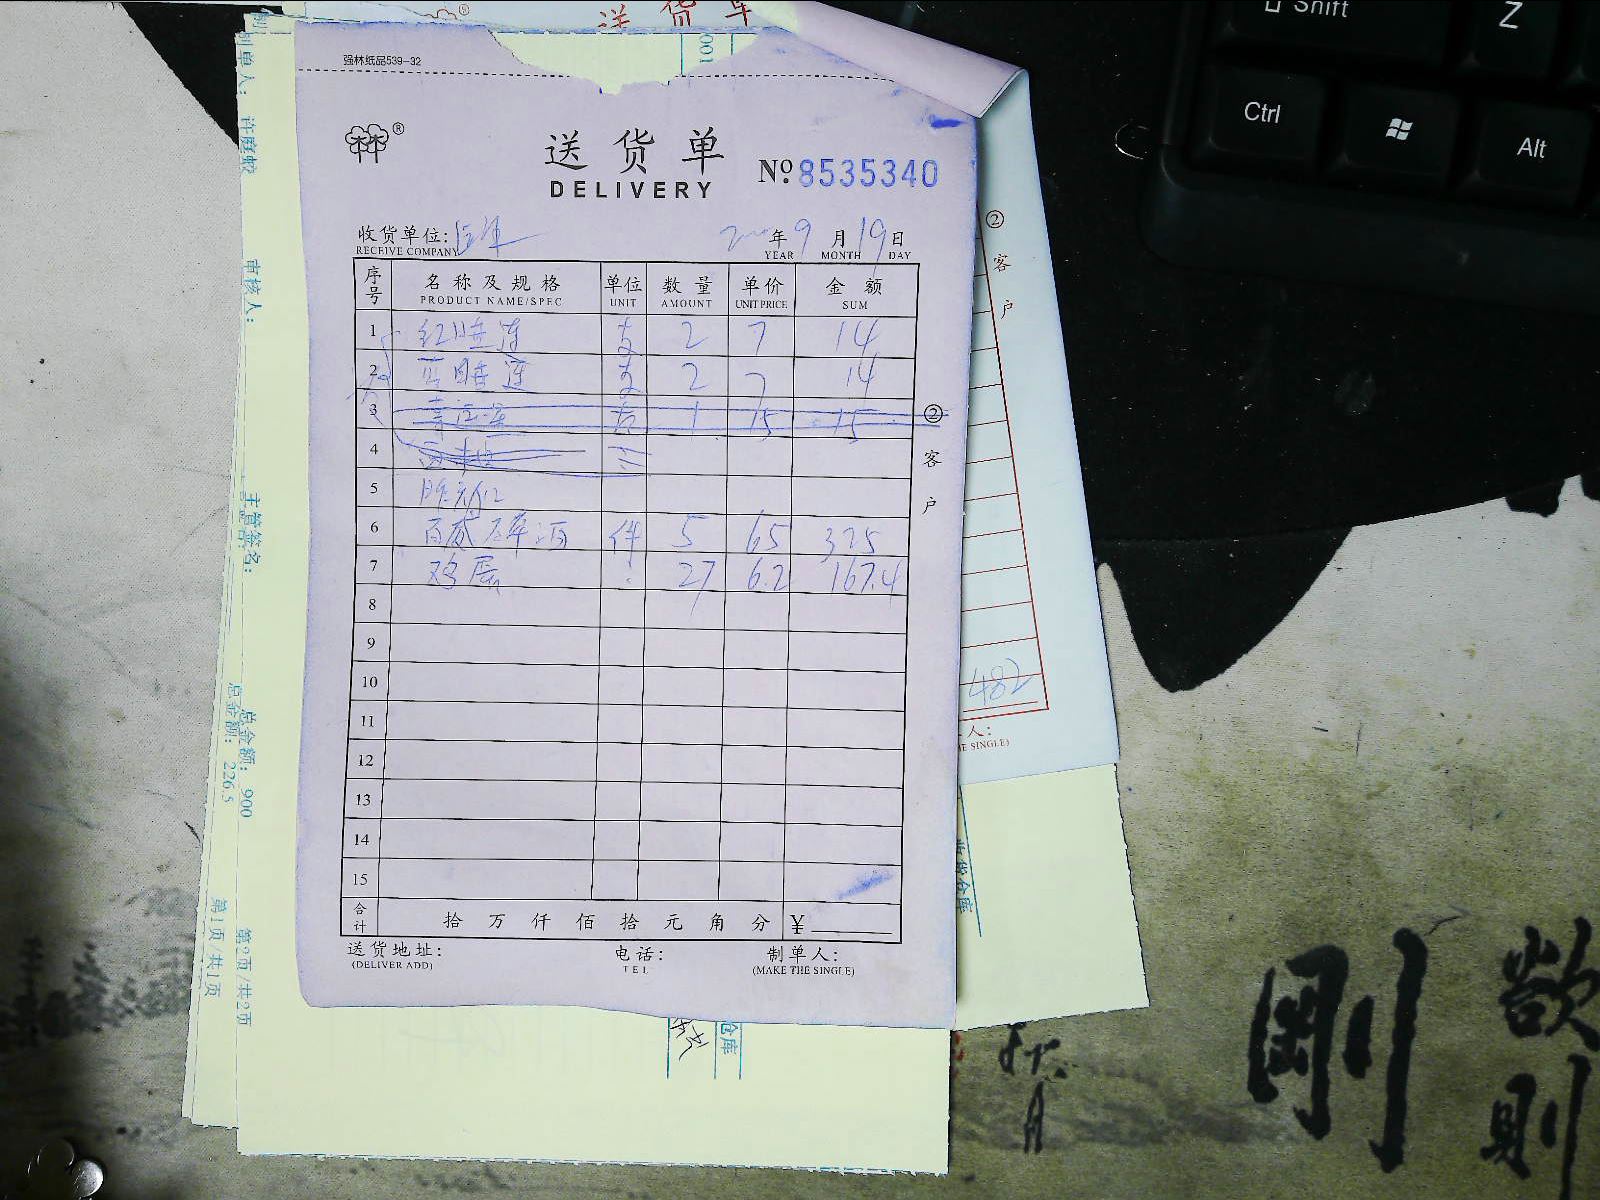 送 货 单
强林纸品539-32
送 货 单
DELIVERY
№ 8535340
收货单位:
RECEIVE COMPANY
年 9 月 19 日
YEAR MONTH DAY
序号 名称及规格 单位 数量 单价 金额
PRODUCT NAME/SPEC UNIT AMOUNT UNIT PRICE SUM
1 红睡莲 支 2 7 14
2 睡莲 支 2 7 14
3 1 15 15
4
5
6 百威啤酒 件 5 65 325
7 鸡 27 6.2 167.4
8
9
10
11
12
13
14
15
合计 拾 万 仟 佰 拾 元 角 分 ¥
送货地址:
(DELIVER ADD)
电话:
TEL
制单人:
(MAKE THE SINGLE)
② 客户
② 客户
482
人:
E SINGLE)
001
制单人:
审核人:
主管签名:
总金额: 900
总金额: 226.5
第2页/共2页
第1页/共1页
收货仓库
仓库
Shift
Z
Ctrl
Alt
剛
欲
則